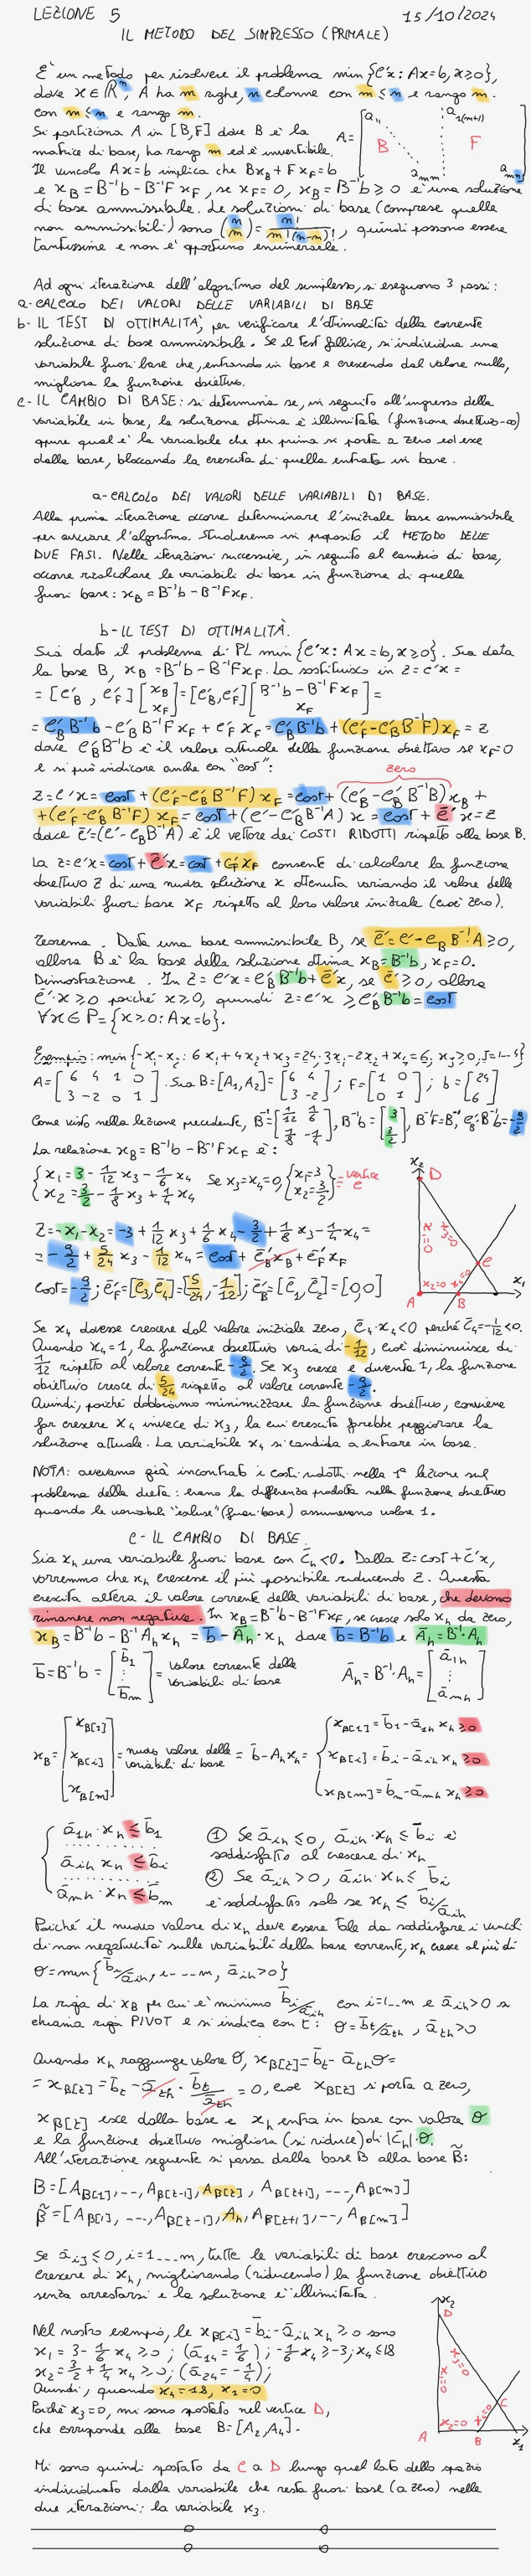 LEZIONE 5 15/10/2024
IL METODO DEL SIMPLESSO (PRIMALE)
E' un metodo per risolvere il problema min{c'x: Ax=b, x≥0},
dove x∈R^n, A ha m righe, n colonne con m≤n e rango m.
con m≤n e rango m.
Si partiziona A in [B,F] dove B è la
matrice di base, ha rango m ed è invertibile.
A = [a11 a1(m+1) B F amm amn]
Il vincolo Ax=b implica che BxB+FxF=b
e xB=B⁻¹b-B⁻¹FxF, se xF=0, xB=B⁻¹b≥0 è una soluzione
di base ammissibile. Le soluzioni di base (comprese quelle
non ammissibili) sono (n m) = n!/m!(n-m)!, quindi possono essere
tantissime e non è opportuno enumerarle.
Ad ogni iterazione dell'algoritmo del simplesso, si eseguono 3 passi:
a- CALCOLO DEI VALORI DELLE VARIABILI DI BASE
b- IL TEST DI OTTIMALITÀ, per verificare l'ottimalità della corrente
soluzione di base ammissibile. Se il test fallisce, si individua una
variabile fuori base che, entrando in base e crescendo dal valore nullo,
migliora la funzione obiettivo.
c- IL CAMBIO DI BASE: si determina se, in seguito all'ingresso della
variabile in base, la soluzione ottima è illimitata (funzione obiettivo -∞)
oppure qual è la variabile che per prima si porta a zero ed esce
dalla base, bloccando la crescita di quella entrata in base.
a- CALCOLO DEI VALORI DELLE VARIABILI DI BASE.
Alla prima iterazione occorre determinare l'iniziale base ammissibile
per avviare l'algoritmo. Studieremo in proposito il METODO DELLE
DUE FASI. Nelle iterazioni successive, in seguito al cambio di base,
occorre ricalcolare le variabili di base in funzione di quelle
fuori base: xB = B⁻¹b - B⁻¹FxF.
b- IL TEST DI OTTIMALITÀ.
Sia dato il problema di PL min{c'x: Ax=b, x≥0}. Sia data
la base B, xB=B⁻¹b-B⁻¹FxF. La sostituisco in z=c'x=
= [c'B, c'F][xB xF] = [c'B, c'F][B⁻¹b-B⁻¹FxF xF] =
= c'B B⁻¹b - c'B B⁻¹FxF + c'F xF = c'B B⁻¹b + (c'F - c'B B⁻¹F)xF = z
dove c'B B⁻¹b è il valore attuale della funzione obiettivo se xF=0
e si può indicare anche con "cost":
zero
z=c'x=cost+(c'F-c'B B⁻¹F)xF=cost+(c'B-c'B B⁻¹B)xB+
+(c'F-c'B B⁻¹F)xF=cost+(c'-c'B B⁻¹A)x=cost+c̄'x=z
dove c̄'=(c'-cB B⁻¹A) è il vettore dei COSTI RIDOTTI rispetto alla base B.
La z=c'x=cost+c̄'x=cost+c̄'F xF consente di calcolare la funzione
obiettivo z di una nuova soluzione x ottenuta variando il valore delle
variabili fuori base xF rispetto al loro valore iniziale (cioè zero).
Teorema. Data una base ammissibile B, se c̄'=c'-cB B⁻¹A≥0,
allora B è la base della soluzione ottima xB=B⁻¹b, xF=0.
Dimostrazione. In z=c'x=c'B B⁻¹b+c̄'x, se c̄'≥0, allora
c̄'x≥0 poiché x≥0, quindi z=c'x≥c'B B⁻¹b=cost
∀x∈P={x≥0: Ax=b}.
Esempio: min{-x1-x2: 6x1+4x2+x3=24; 3x1-2x2+x4=6; xj≥0, j=1...4}
A=[6 4 1 0; 3 -2 0 1]. Sia B=[A1,A2]=[6 4; 3 -2]; F=[1 0; 0 1]; b=[24; 6]
Come visto nella lezione precedente, B⁻¹=[1/12 1/6; 1/8 -1/4], B⁻¹b=[3; 3/2], B⁻¹F=B⁻¹, c'B B⁻¹b=-9/2
La relazione xB=B⁻¹b-B⁻¹FxF è:
{x1=3-1/12x3-1/6x4 Se x3=x4=0, {x1=3 =vertice
x2=3/2-1/8x3+1/4x4 x2=3/2 C
z=-x1-x2=-3+1/12x3+1/6x4-3/2+1/8x3-1/4x4=
=-9/2+5/24x3-1/12x4=cost+c̄'B xB+c̄'F xF
cost=-9/2; c̄'F=[c̄3,c̄4]=[5/24,-1/12]; c̄'B=[c̄1,c̄2]=[0,0]
x2
D
x1=0
x3=0
C
x2=0 x4=0
x1
A B
Se x4 dovesse crescere dal valore iniziale zero, c̄4·x4<0 perché c̄4=-1/12<0.
Quando x4=1, la funzione obiettivo varia di -1/12, cioè diminuisce di
1/12 rispetto al valore corrente -9/2. Se x3 cresce e diventa 1, la funzione
obiettivo cresce di 5/24 rispetto al valore corrente -9/2.
Quindi, poiché dobbiamo minimizzare la funzione obiettivo, conviene
far crescere x4 invece di x3, la cui crescita farebbe peggiorare la
soluzione attuale. La variabile x4 si candida a entrare in base.
NOTA: avevamo già incontrato i costi ridotti nella 1ª lezione sul
problema della dieta: erano la differenza prodotta nella funzione obiettivo
quando le variabili "escluse" (fuori base) assumevano valore 1.
C- IL CAMBIO DI BASE.
Sia xh una variabile fuori base con c̄h<0. Dalla z=cost+c̄'x,
vorremmo che xh crescesse il più possibile riducendo z. Questa
crescita altera il valore corrente delle variabili di base, che devono
rimanere non negative. In xB=B⁻¹b-B⁻¹FxF, se cresce solo xh da zero,
xB=B⁻¹b-B⁻¹Ah xh=b̄-Āh·xh dove b̄=B⁻¹b e Āh=B⁻¹·Ah
b̄=B⁻¹b=[b̄1 ⋮ b̄m]=valore corrente delle variabili di base Āh=B⁻¹·Ah=[ā1h ⋮ āmh]
xB=[xB[1] xB[i] xB[m]]=nuovo valore delle variabili di base=b̄-Āhxh={xB[1]=b̄1-ā1h xh≥0
xB[i]=b̄i-āih xh≥0
xB[m]=b̄m-āmh xh≥0
{ā1h·xh≤b̄1 ① Se āih≤0, āih·xh≤b̄i è
soddisfatto al crescere di xh
āih xh≤b̄i ② Se āih>0, āih·xh≤b̄i
āmh·xh≤b̄m è soddisfatto solo se xh≤b̄i/āih
Poiché il nuovo valore di xh deve essere tale da soddisfare i vincoli
di non negatività sulle variabili della base corrente, xh cresce al più di
θ=min{b̄i/āih, i=1...m, āih>0}
La riga di xB per cui è minimo b̄i/āih con i=1...m e āih>0 si
chiama riga PIVOT e si indica con t: θ=b̄t/āth, āth>0
Quando xh raggiunge valore θ, xB[t]=b̄t-āthθ=
=xB[t]=b̄t-āth·b̄t/āth=0, cioè xB[t] si porta a zero,
xB[t] esce dalla base e xh entra in base con valore θ
e la funzione obiettivo migliora (si riduce) di |c̄h|·θ.
All'iterazione seguente si passa dalla base B alla base B̃:
B=[AB[1],--,AB[t-1],AB[t],AB[t+1],---,AB[m]]
B̃=[AB[1],---,AB[t-1],Ah,AB[t+1],--,AB[m]]
Se āij≤0, i=1...m, tutte le variabili di base crescono al
crescere di xh, migliorando (riducendo) la funzione obiettivo
senza arrestarsi e la soluzione è illimitata.
Nel nostro esempio, le xB[i]=b̄i-āih xh≥0 sono
x1=3-1/6x4≥0; (ā14=1/6); -1/6x4≥-3; x4≤18
x2=3/2+1/4x4≥0; (ā24=-1/4);
Quindi, quando x4=18, x1=0
Poiché x3=0, mi sono spostato nel vertice D,
che corrisponde alla base B=[A2,A4].
x2
D
x3=0
x1=0
C
x2=0 x4=0
A B x1
Mi sono quindi spostato da C a D lungo quel lato dello spazio
individuato dalla variabile che resta fuori base (a zero) nelle
due iterazioni: la variabile x3.